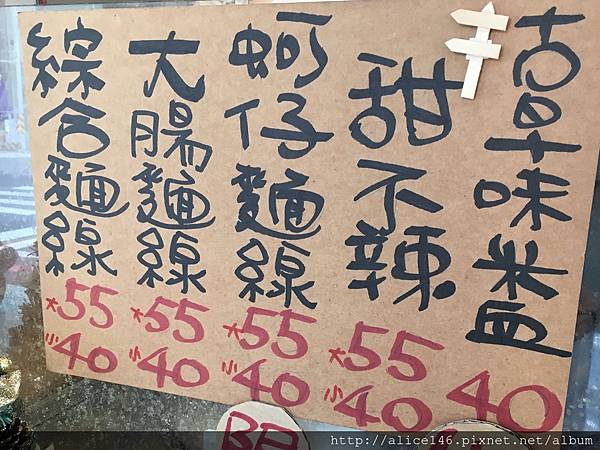 古早味米血 40
甜不辣 大55 小40
蚵仔麵線 大55 小40
大腸麵線 大55 小40
綜合麵線 大55 小40
http://alice146.pixnet.net/album